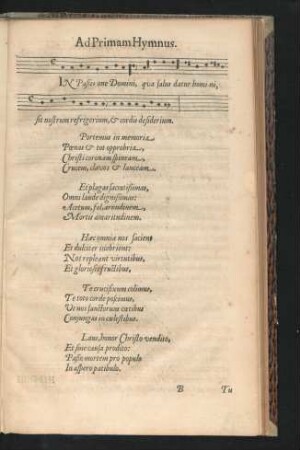 Ad Primam Hymnus.
IN Passione Domini, qua salus datur homini,
sit nostrum refrigerium, & cordis desiderium.
Portemus in memoria
Pœnas & tot opprobria,
Christi coronam spineam,
Crucem, clavos & lanceam.
Et plagas sacratissimas,
Omni laude dignissimas:
Acetum, fel, arundinem,
Mortis amaritudinem.
Hæc omnia nos satient
Et dulciter inebrient:
Nos repleant virtutibus,
Et gloriosis fructibus.
Te crucifixum colimus,
Te toto corde poscimus,
Ut nos sanctorum cœtibus
Conjungas in cælestibus.
Laus, honor Christo vendito,
Et sine causa prodito:
Passo mortem pro populo
In aspero patibulo.
B Tu